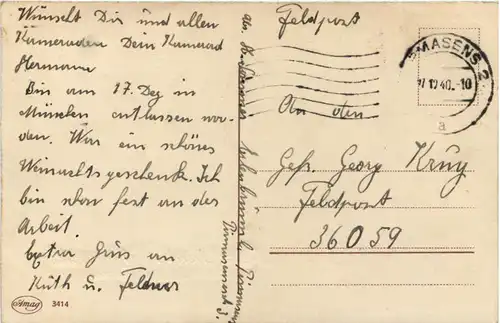 Wünscht Dir und allen
Kameraden Dein Kamerad
Hermann
Bin am 17. Dez in
München entlassen wor-
den. War ein schönes
Weinachtsgeschenk. Ich
bin schon fest an der
Arbeit.
Extra Gruß an
Ruth u. Feldner
Amag 3414
Feldpost
MASENS 2
12.40.-10
a
An den
Gefr. Georg Krug
Feldpost
36059
Abs. H.
Pirmasens